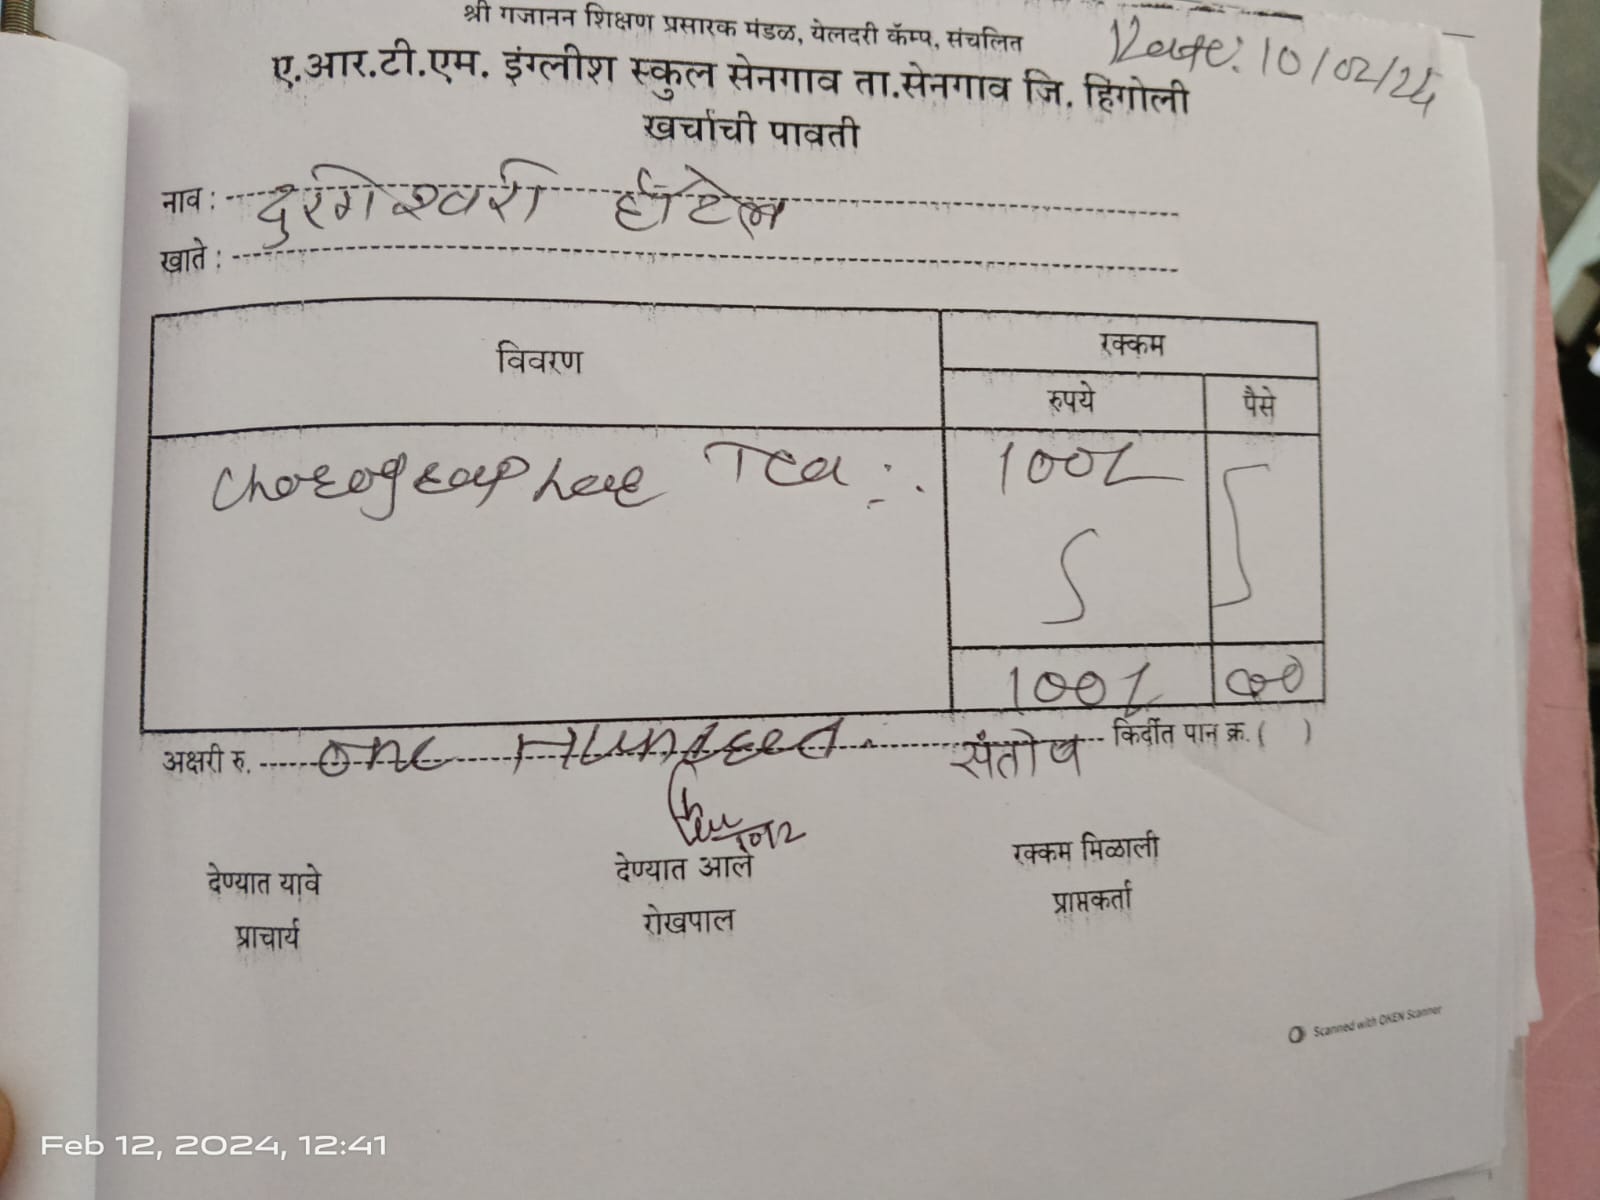 श्री गजानन शिक्षण प्रसारक मंडळ, येलदरी कॅम्प, संचलित
Date: 10/02/24
ए.आर.टी.एम. इंग्लीश स्कुल सेनगाव ता.सेनगाव जि. हिंगोली
खर्चाची पावती
नाव : दुर्गेश्वरी हॉटेल
खाते :
विवरण
रक्कम
रुपये पैसे
Choreographer Tea :- 100/-
100/- 00
अक्षरी रु. One Hundred संतोष किर्दीत पान क्र. ( )
देण्यात यावे देण्यात आले रक्कम मिळाली
प्राचार्य रोखपाल प्राप्तकर्ता
Scanned with OKEN Scanner
Feb 12, 2024, 12:41